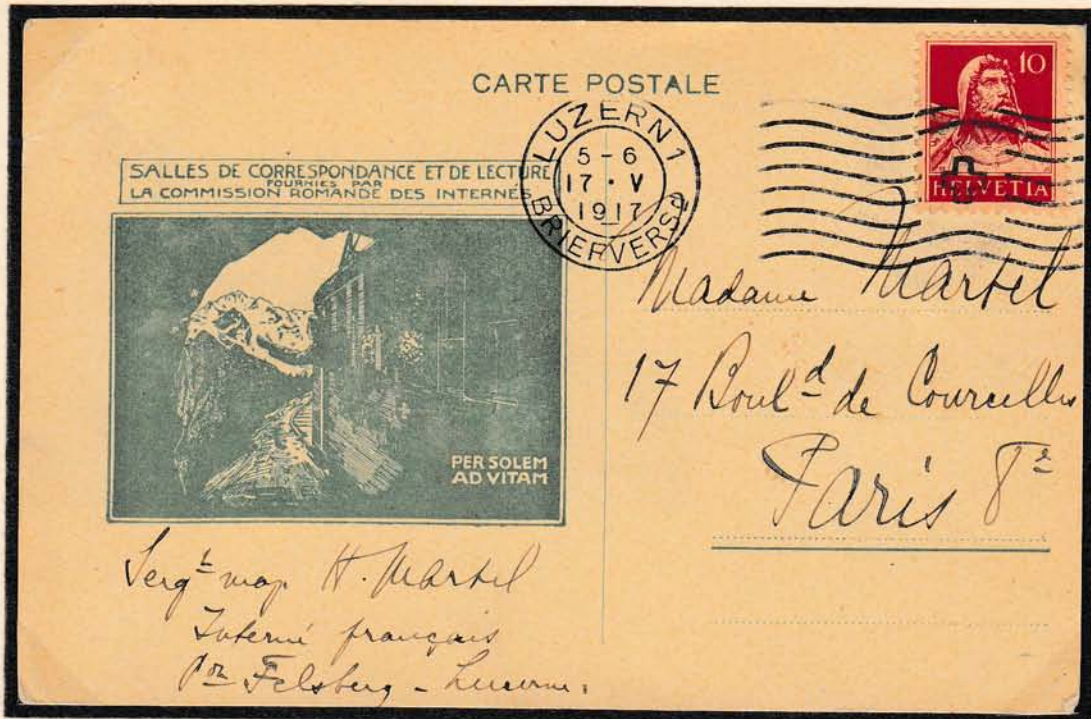 CARTE POSTALE
10
HELVETIA
LUZERN 1
5-6
17 · V
1917
BRIEFVERSD
SALLES DE CORRESPONDANCE ET DE LECTURE
FOURNIES PAR
LA COMMISSION ROMANDE DES INTERNÉS
PER SOLEM
AD VITAM
Madame Martel
17 Boul^d de Courcelles
Paris 8^e
Serg^t maj H. Martel
Interné français
P^on Felsberg - Lucerne.